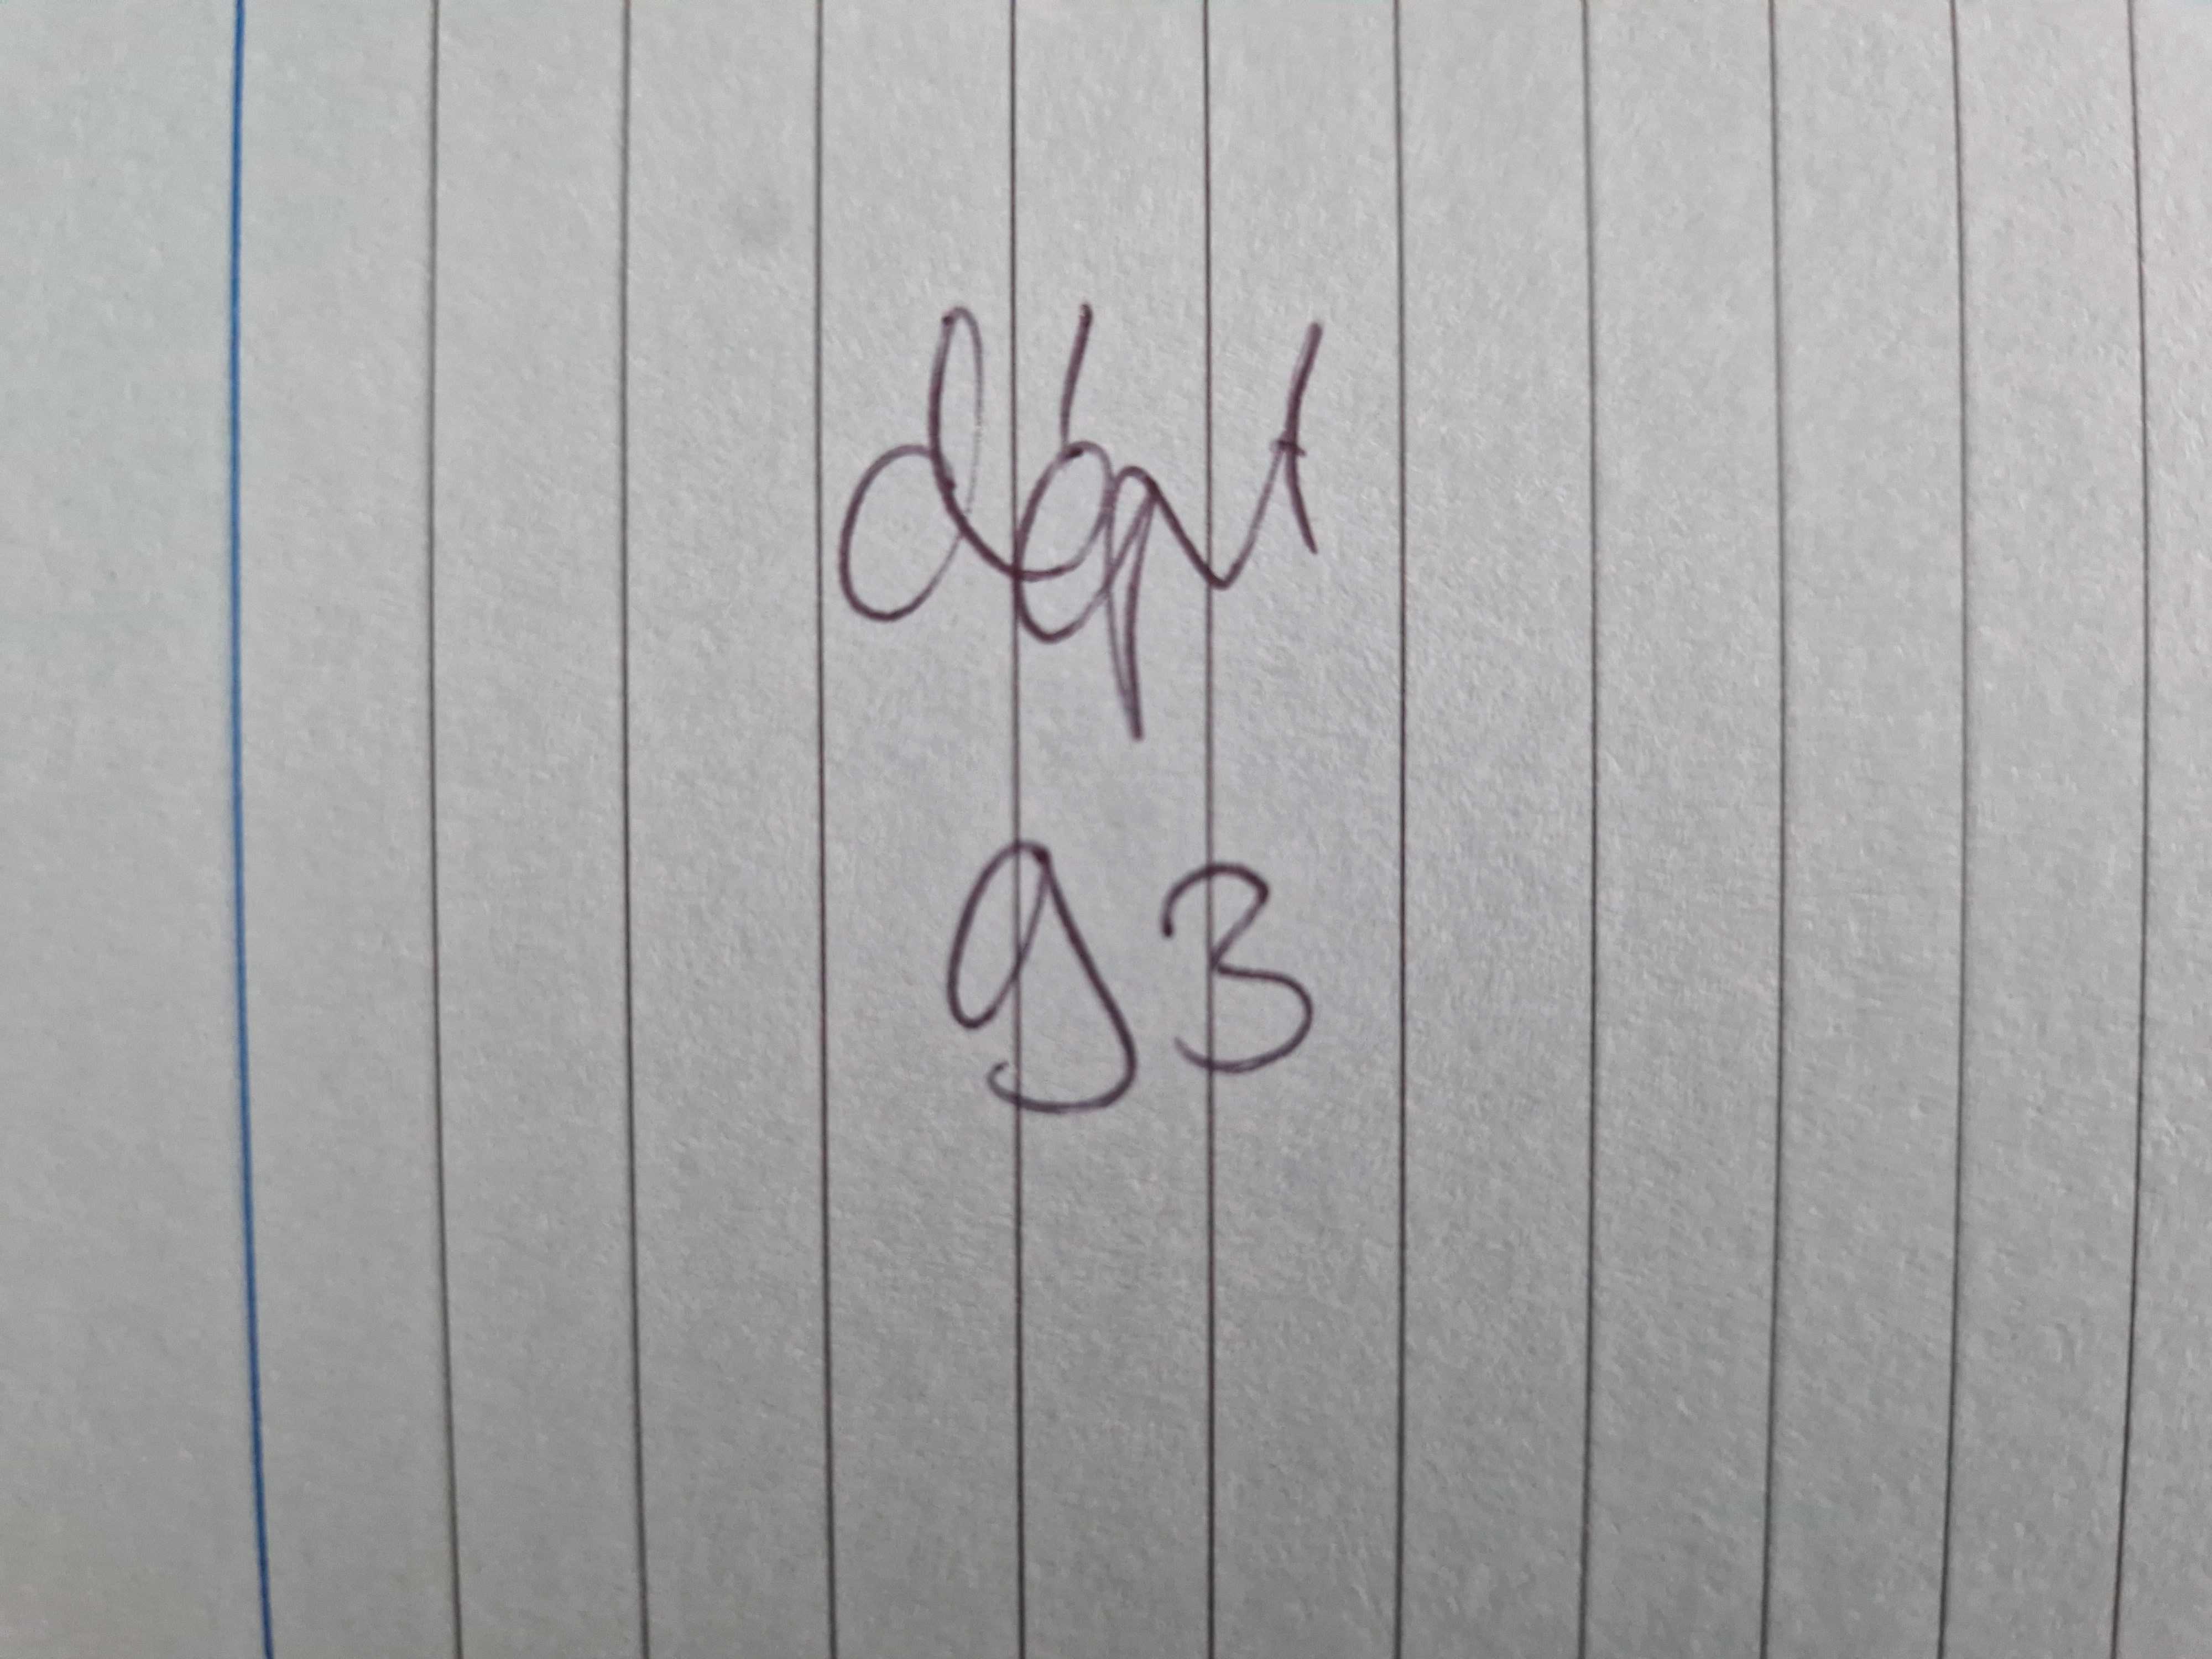 dépt
93